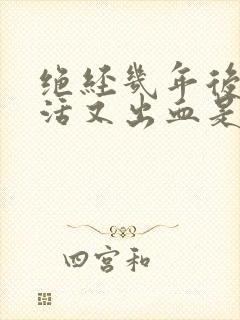 绝经几年后
活又出血是
四宫和